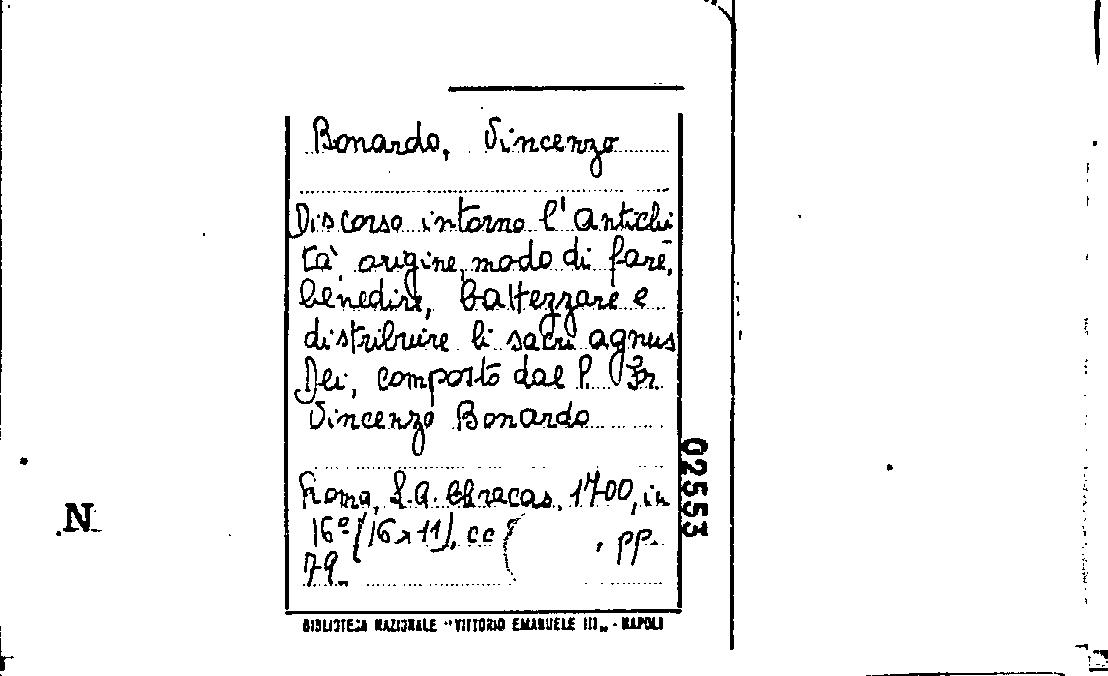 Bonardo, Vincenzo
Discorso intorno l'antichi
tà, origine, modo di fare,
benedire, battezzare e
distribuire li sacri agnus
Dei, composto dal P. Fr
Vincenzo Bonardo
Roma, L.A. Chracas, 1700, in
16º (16x11), cc
, pp.
79.
02553
N
BIBLIOTECA NAZIONALE "VITTORIO EMANUELE III" - NAPOLI